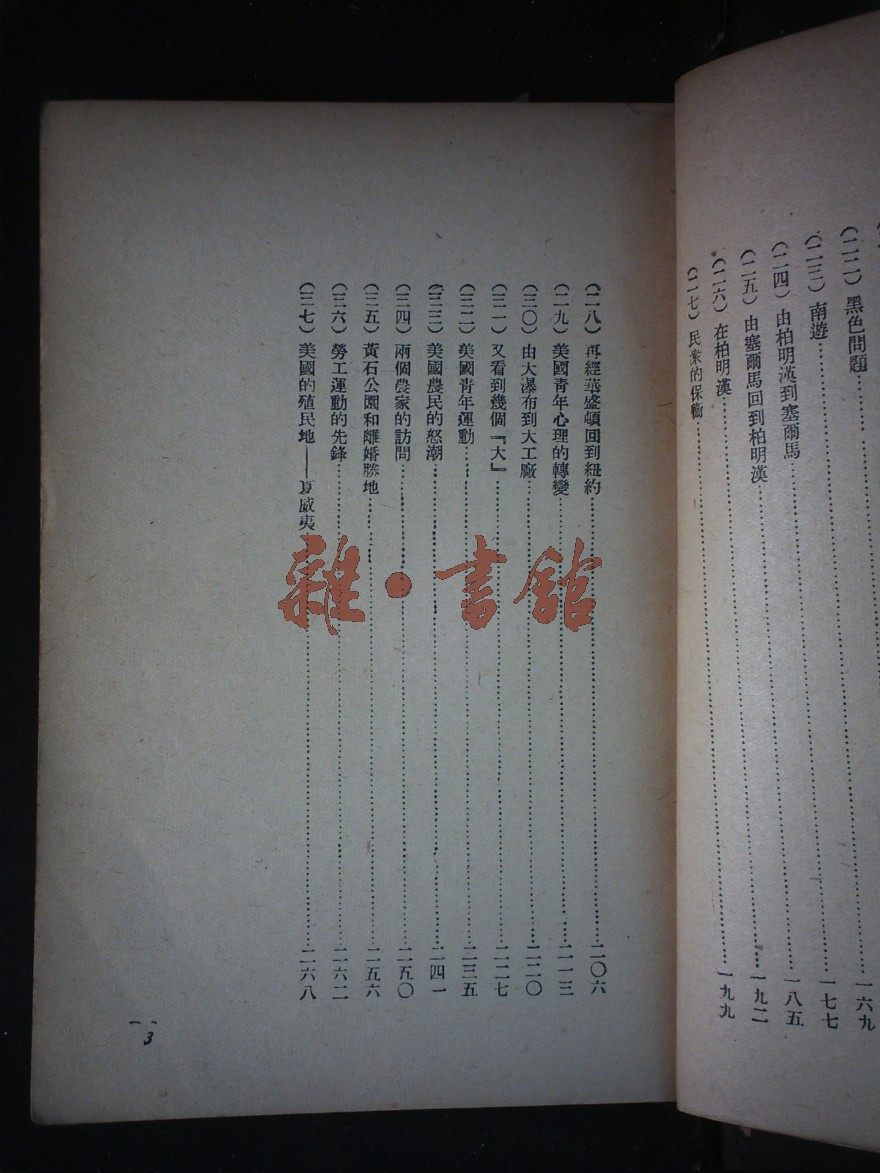 (二二) 黑色問題……一六九
(二三) 南遊……一七七
(二四) 由柏明漢到塞爾馬……一八五
(二五) 由塞爾馬回到柏明漢……一九二
(二六) 在柏明漢……一九九
(二七) 民衆的保衛……
(二八) 再經華盛頓回到紐約……二〇六
(二九) 美國青年心理的轉變……二一三
(三〇) 由大瀑布到大工廠……二二〇
(三一) 又看到幾個『大』……二二七
(三二) 美國青年運動……二三五
(三三) 美國農民的怒潮……二四一
(三四) 兩個農家的訪問……二五〇
(三五) 黃石公園和離婚勝地……二五六
(三六) 勞工運動的先鋒……二六二
(三七) 美國的殖民地——夏威夷……二六八
3
雜·書館